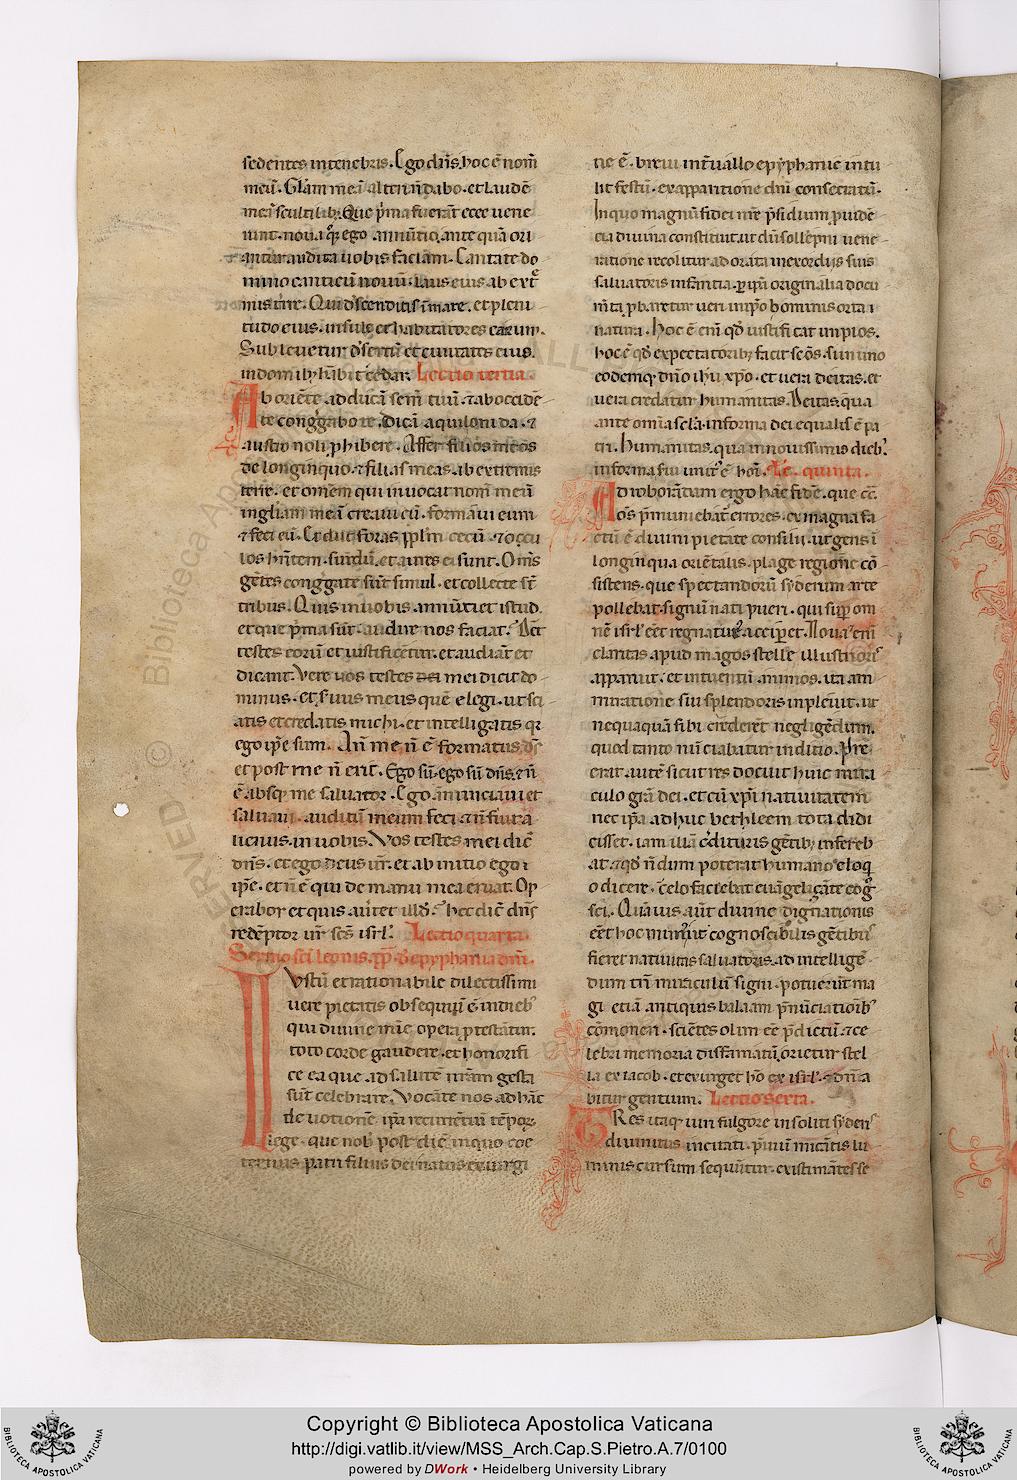 sedentes in tenebris. Ego dn̄s. hoc ē nom̄
meū. Glam̄ meā al̄tri n̄ dabo. et laudē
meā scultilib;. Que p̄ma fuerāt ecce uene
iunt. noua q̄; ego annūtio. ante quā ori
antur audita uobis faciam. Cantate do
mino canticū nouū. laus eius ab ext̄
mis t̄rre. Qui d̄scenditis ī mare. et pleni
tudo eius. insule et habitatores earum.
Subleuetur d̄sertū et ciuitates eius.
in domib; h̄bit̄ cedar. Lectio tertia.
Ab oriēte adducā sem̄ tuū. ⁊ ab occidē
te conḡgabo te. Dicā aquiloni da. ⁊
austro noli p̱hibere. Affer filios meos
de longinquo. ⁊ filias meas ab extremis
terre. et omēm qui inuocat nom̄ meū
in gl̄iam meā creaui eū. formaui eum
⁊ feci eū. Educ foras pp̄lm cecū. ⁊ occu
los hn̄tem. surdū. et aures ei sunt. Om̄s
gētes conḡgate sūt simul. et collecte sт̄
tribus. Quis in uobis annūtiet istud.
et que p̄ma sūt. audire nos faciat. Dēt
testes eorū et iustificētur. et audiāt et
dicant. Vere uos testes mei dicit do
minus. et s̄uus meus quē elegi. ut sci
atis et credatis michi. et intelligatis q̄
ego ip̄e sum. An̄ me n̄ ē formatus d̄s
et post me n̄ erit̄. Ego sū. ego sū dn̄s. ⁊ n̄
ē absq; me saluator. Ego annunciaui et
saluaui. auditū meum feci. ⁊ n̄ fuit a
lienus in uobis. Vos testes mei dic̄
dn̄s. et ego deus ur̄. et ab initio ego i
ip̄e. et n̄ ē qui de manu mea eruat. Op
erabor et quis aūtet illd̄. hec dic̄ dn̄s
redēptor ur̄ sc̄s isrl̄. Lectio quarta.
Sermo sc̄i leonis pp̄. d̄ epyphania dn̄i.
Iustū et rationabile dilectissimi
uere pietatis obsequiū ē. in dieb;
qui diuine mīe opera p̱testātur.
toto corde gaudere. et honorifi
ce ea que ad salutē nr̄am gesta
sūt celebrare. Vocāte nos ad hāc
de uotionē ip̄a recurrētiū tēpoꝝ
lege. que nob̄ post diē in quo coe
ternus patri filius dei natus ex uirgi
ne ē. breui int̄uallo epyphanie intu
lit festū. ex apparitione dn̄i consecratū.
In quo magnū fidei nr̄e p̄sidium p̱uidē
cia diuina constituit. ut dū sollepni uene
ratione recolitur adorata in exordiis suis
saluatoris infantia. p̱ ip̄a originalia docu
m̄ta p̱baretur ueri in ip̄o hominis orta i
natura. Hoc ē eni̅ qd̄ iustificat impios.
hoc ē qd̄ ex peccatorib; facit sc̄os. si in uno
eodemq; dn̄o ihu xp̄o. et uera deitas. et
uera credatur humanitas. Deitas. qua
ante omīa sc̄la. in forma dei equalis ē pa
tri. Humanitas. qua in nouissimis dieb;
in forma s̄ui unit̄ ē hoī. Lc̄. quinta.
Ad roborādam ergo hāc fidē. que cō
os̄ p̄muniebat̄ errores. ex magna fa
ctū ē diuini pietate consilii. ut gens ī
longinqua oriētalis plage regione cō
sistens. que spectandorū syderum arte
pollebat. signū nati pueri. qui sup̱ om
nē isrl̄ eēt regnaturꝰ. accip̱et. Noua eni̅
claritas apud magos stelle illustrior
apparuit. et intuentiū animos. ita am
miratione sui splendoris inpleuit. ut
nequaquā sibi crederēt negligēdum.
quod tanto nūciabatur inditio. Pre
erat autē sicut res docuit huic mira
culo grā dei. et cū xp̄i natiuitatem
nec ip̄a adhuc bethleem tota didi
cisset. iam illā c̄dituris gētib; infereb
at. ⁊ qd̄ n̄dum poterat humano eloq̄
o dicere. celo faciebat euāgelizāte coḡ
sci. Quāuis aūt diuine dignationis
eēt hoc munus. ut cognoscibilis gētib;
fieret natiuitas saluatoris. ad intelligē
dum tn̄ miraculū signi. potuerūt ma
gi etiā antiquis balaam p̄nūciatioib;
cōmoneri. sciētes olim eē p̄dictū. ⁊ ce
lebri memoria diffamatū. orietur stel
la ex iacob. et exurget hō ex isrl̄. ⁊ dn̄a
bitur gentium. Lectio sexta.
Tres itaq; uiri fulgore insoliti syderis
diuinitus incitati. p̄uiū micātis lu
minis cursum sequūtur. existimātes se
Copyright © Biblioteca Apostolica Vaticana
http://digi.vatlib.it/view/MSS_Arch.Cap.S.Pietro.A.7/0100
powered by DWork • Heidelberg University Library